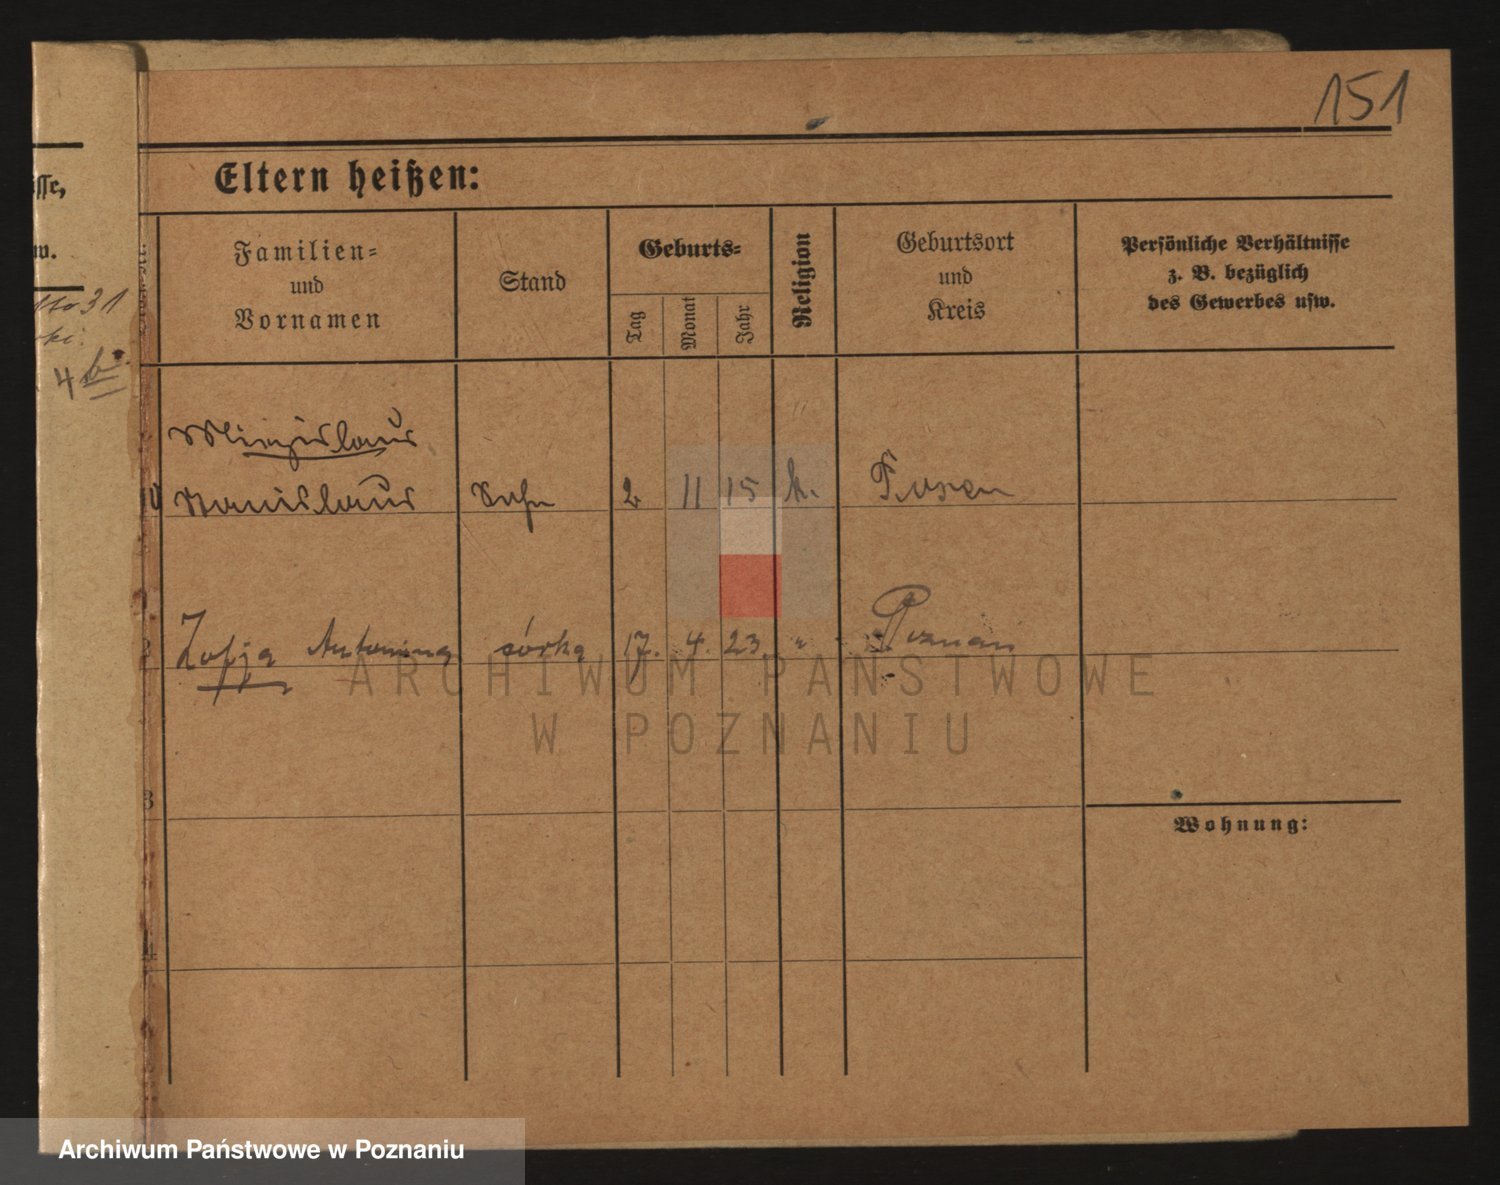 151
Eltern heißen:
Familien=
und
Vornamen
Stand
Geburts=
Tag
Monat
Jahr
Religion
Geburtsort
und
Kreis
Persönliche Verhältnisse
z. B. bezüglich
des Gewerbes usw.
sse,
w.
31
ki.
4 b.
Miezislaus
Stanislaus Sohn 2 11 15 k. Posen
2 Zofja Antonina córka 17. 4. 23. " Poznań
ARCHIWUM PAŃSTWOWE
W POZNANIU
3
Wohnung:
4
Archiwum Państwowe w Poznaniu